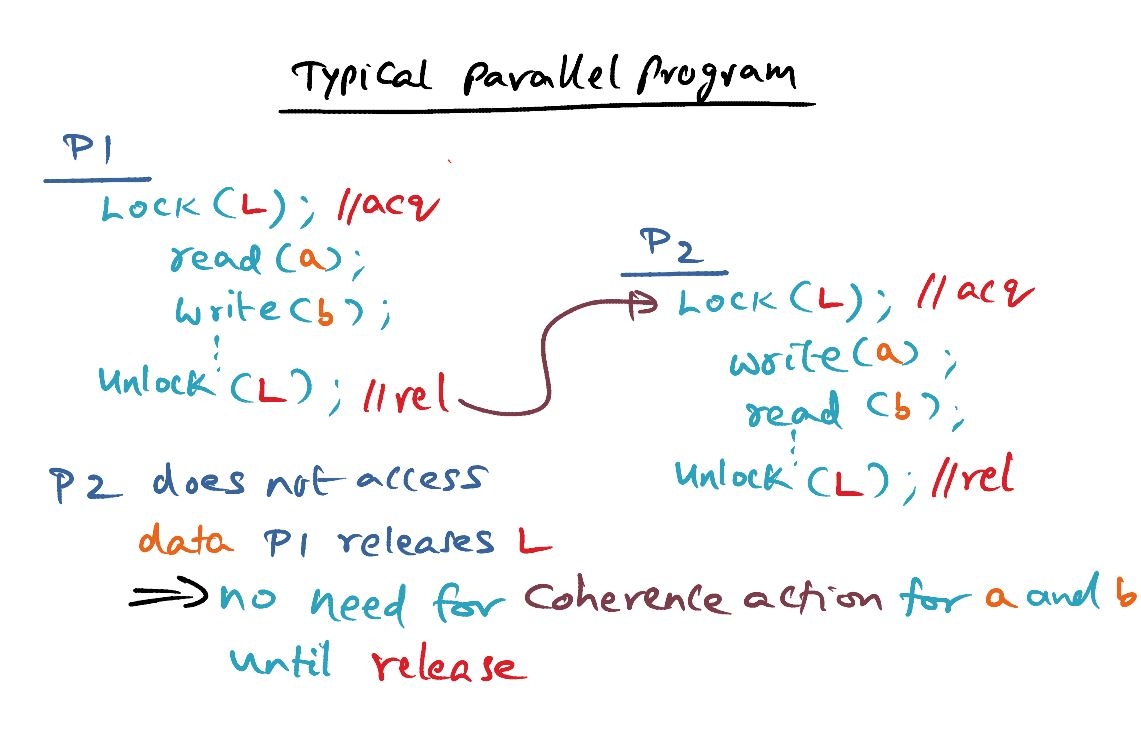 Typical Parallel Program
P1
Lock(L); //acq
read(a);
write(b);
Unlock(L); //rel
P2
Lock(L); //acq
write(a);
read(b);
Unlock(L); //rel
P2 does not access
data P1 releases L
⇒ no need for coherence action for a and b
until release